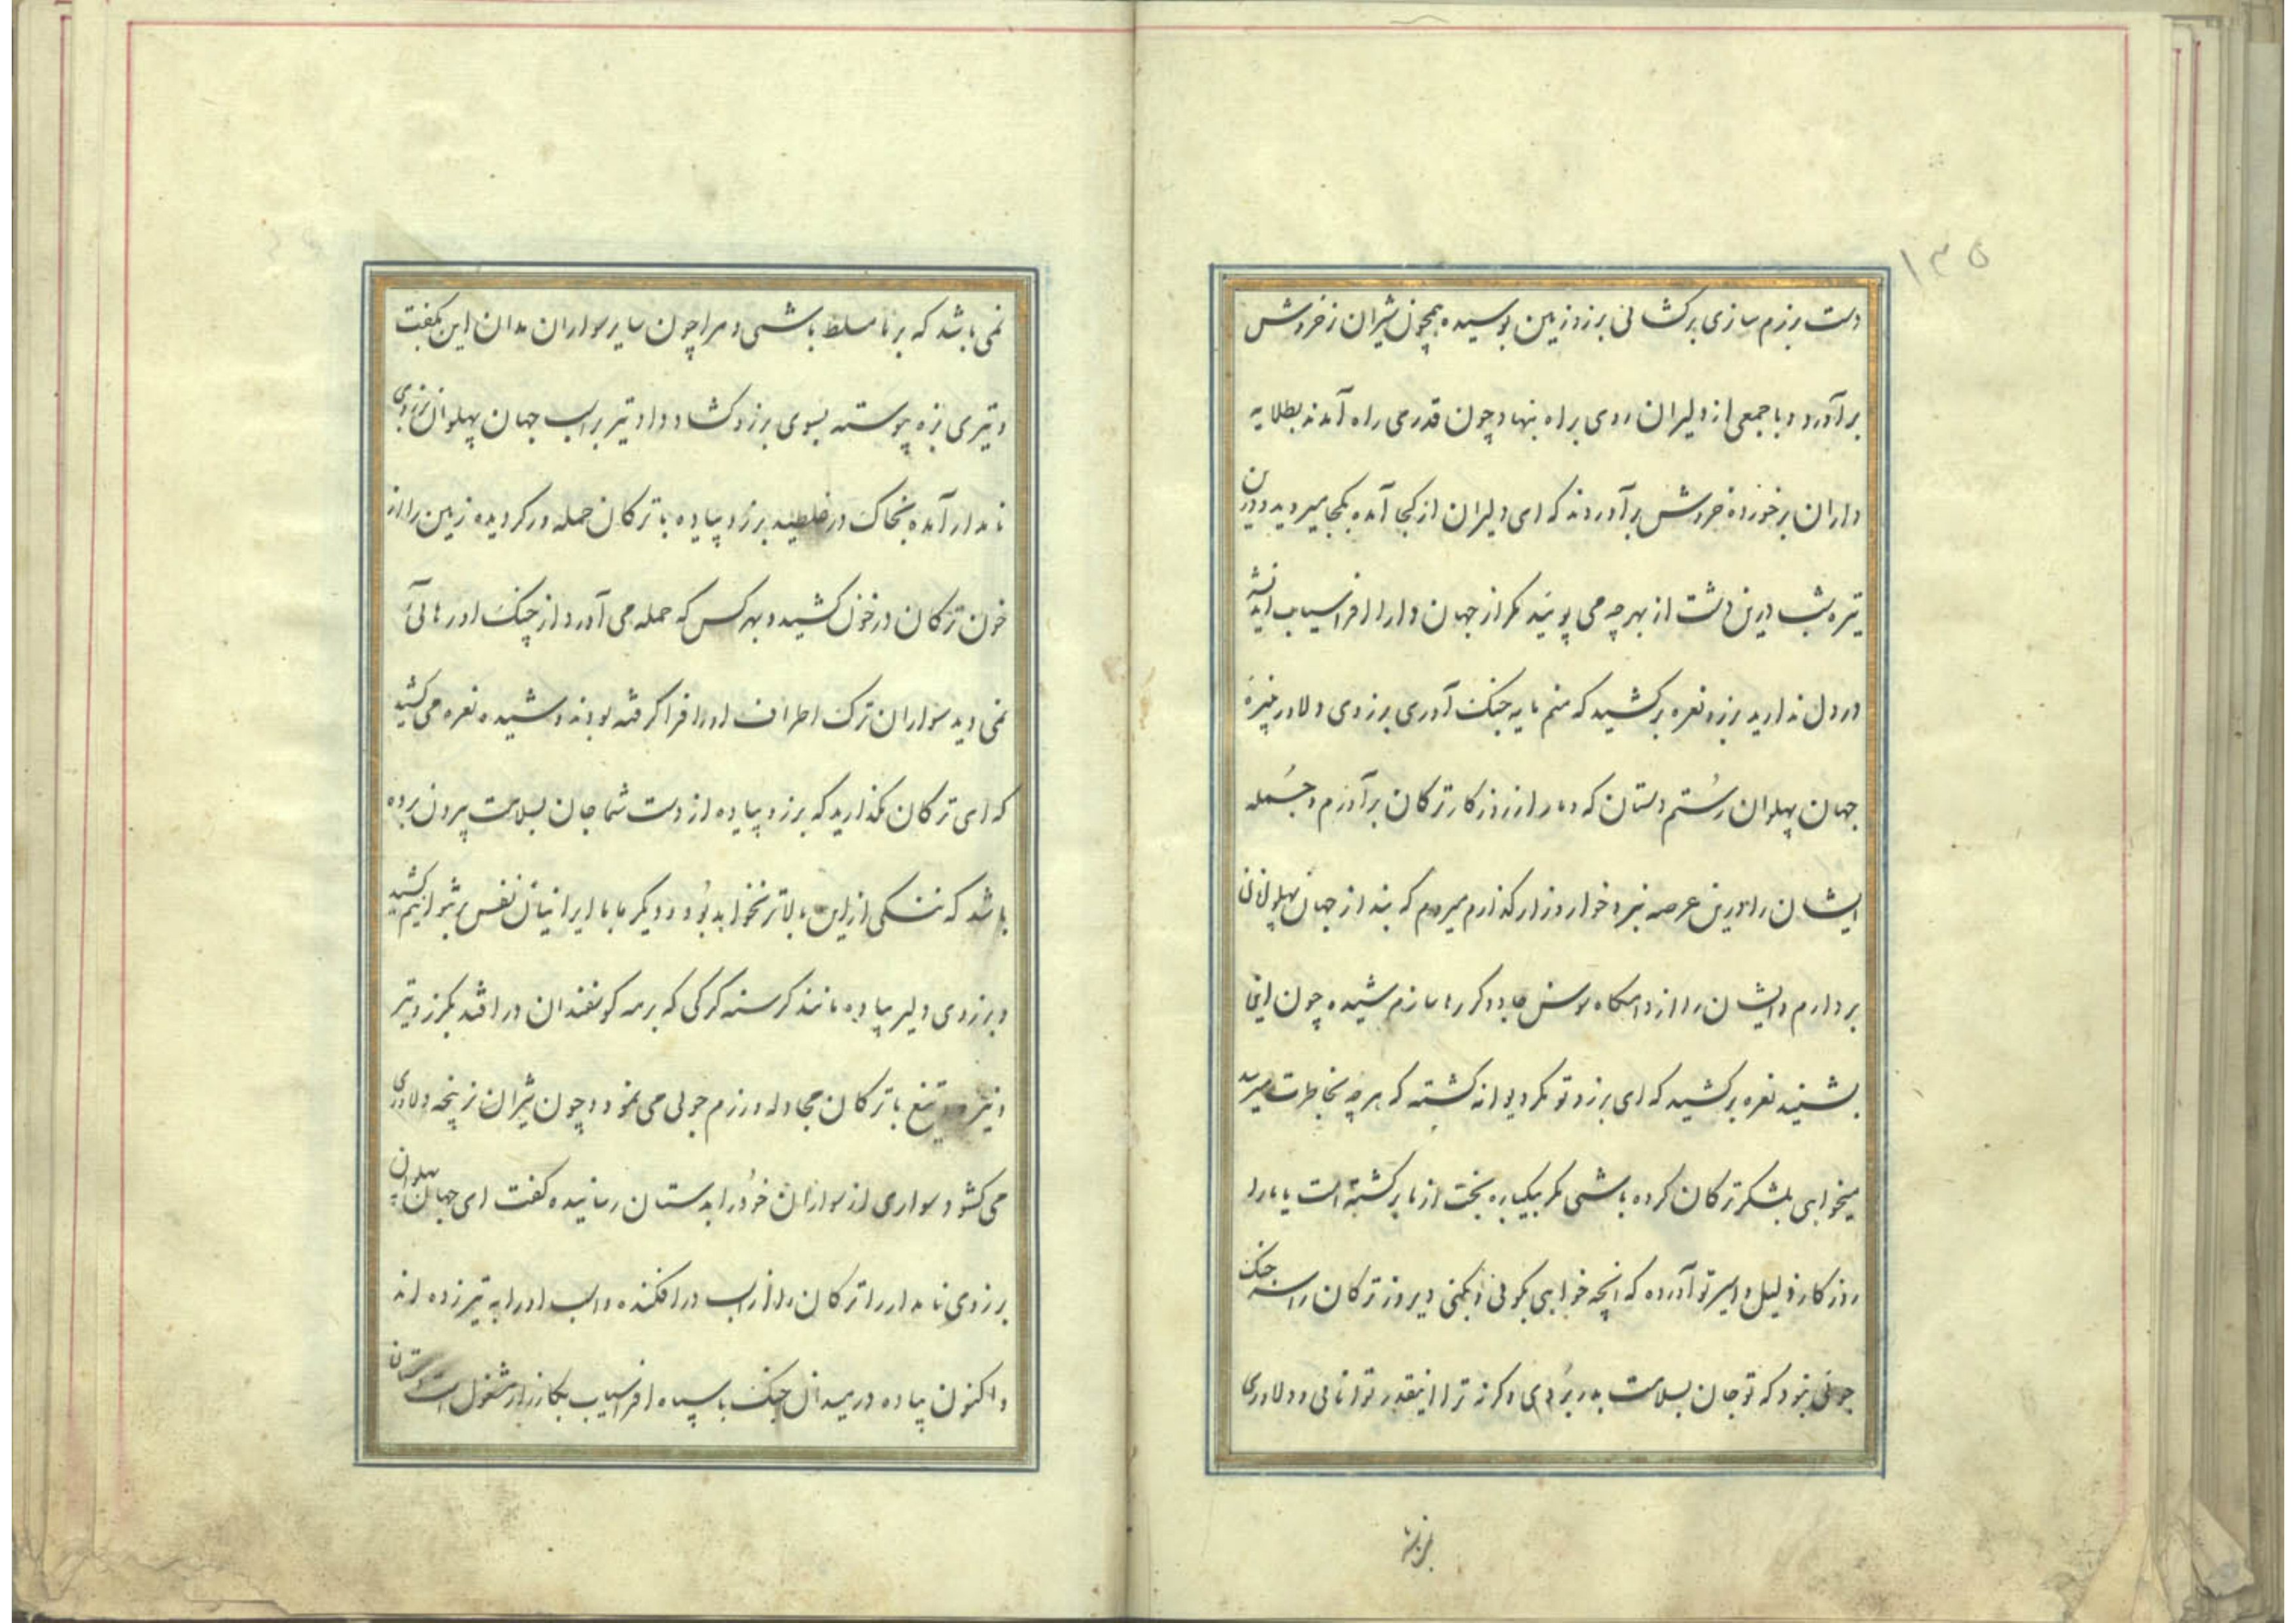 ۱۳۵
دست برزم سازی برکشائی برزو زمین بوسیده همچون شیران ز خروش
برآورد و با جمعی از دلیران روی براه نهاد چون قدرمی راه آمدند بطلایه
داران برخورده خروش برآوردند که ای دلیران از کجا آمده بکجا میروید و درین
تیره شب درین دشت از بهر چه می پوئید مکر از جهان دارا افراسیاب اندیشه
در دل ندارید برزو نعره برکشید که منم مایه جنک آوری برزوی دلاور نبیره
جهان پهلوان رستم دستان که دمار از روزکار ترکان برآورم و جمله
ایشان را درین عرصه نبرد خوار و زار کذارم میروم که بند از جهان پهلوانان
بردارم و ایشان را از دامکاه سوسن جادوکر رها سازم شیده چون این
بشنید نعره برکشید که ای برزو تو مکر دیوانه کشته که هر چه بخاطرت میرسد
میخواهی بلشکر ترکان کرده باشی مکر بیکباره بخت از ما برکشته است یا ما را
روزکار ذلیل و اسیر تو آورده که انچه خواهی بکوئی و بکنی دیروز ترکان را سر جنک
جوئی نبود که تو جان بسلامت بدر بردی و کرنه ترا اینقدر توانائی و دلاوری
نمی باشد که بر ما مسلط باشی و مرا چون سایر سواران مدان این بکفت
و تیری بزه پیوسته بسوی برزو کشاد داد تیر بر اسب جهان پهلوان برزوی
نامدار آمده بخاک در غلطید برزو پیاده با ترکان حمله ور کردیده زمین را از
خون ترکان در خون کشید و بهر کس که حمله می آورد از چنک او رهائی
نمی دید سواران ترک اطراف او را فرا کرفته بودند و شیده نعره می کشید
که ای ترکان مکذارید که برزو پیاده از دست شما جان بسلامت بیرون برده
باشد که ننکی از این بالاتر نخواهد بود و دیکر ما با ایرانیان نفس نتوانیم کشید
و برزوی دلیر پیاده مانند کرسنه کرکی که برمه کوسفندان در افتد بکرز و تیر
و نیزه و تیغ با ترکان مجادله و رزم جوئی می نمود و چون شیران ز پنجه دلاوری
می کشود سواری از سواران خود را بدستان رسانیده کفت ای جهان پهلوان
برزوی نامدار را ترکان از اسب در افکنده و اسب او را به تیر زده اند
و اکنون پیاده در میدان جنک با سپاه افراسیاب بکارزار مشغول است دستان